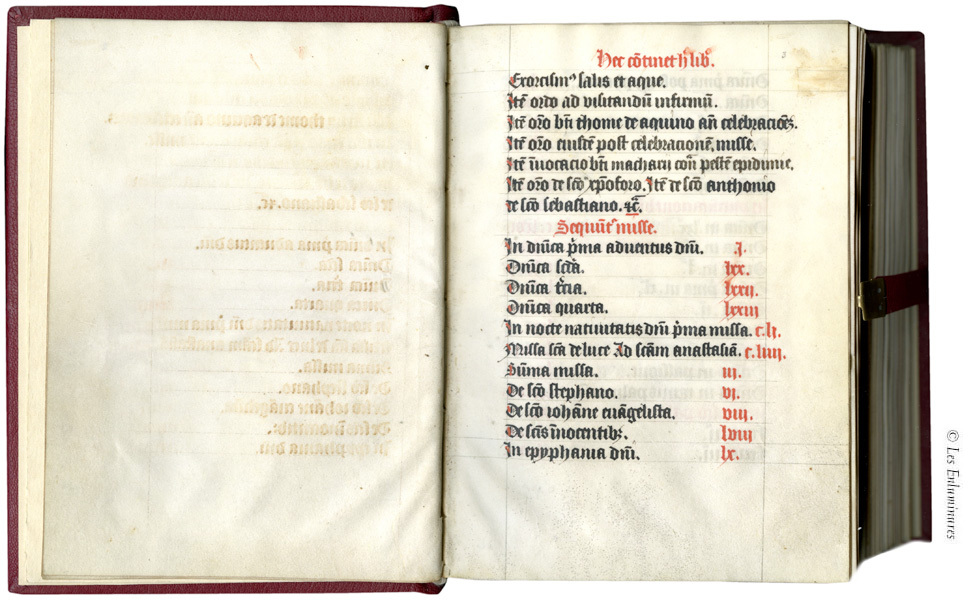 Hec cōtinet h lib᷒.
Exorcism᷒ salis et aque.
Itē ordo ad visitandū infirmū.
Itē orō bti thome de aquino an̄ celebracōēs.
Itē orō eiusdē post celebracionē misse.
Itē īuocacio bti macharii con̄ pestē epidimie.
Itē orō de scō xp̄oforo. Itē de scō anthonio
de scō sebastiano. ⁊c̄.
Sequūt᷒ misse.
In dnīca p̄ma aduentus dnī. j.
Dnīca scd̄a. lxx.
Dnīca tc̄ia. lxxij
Dnīca quarta. lxxiij
In nocte natiuitatis dnī p̄ma missa. c.lj.
Missa scd̄a de luce Ad scām anastasiā. c.liiij.
Sūma missa. iij.
De scō stephano. vj.
De scō iohāne euāgelista. viij.
De scīs īnocentib᷒. lviij
In epyphania dnī. lx.
© Les Enluminures